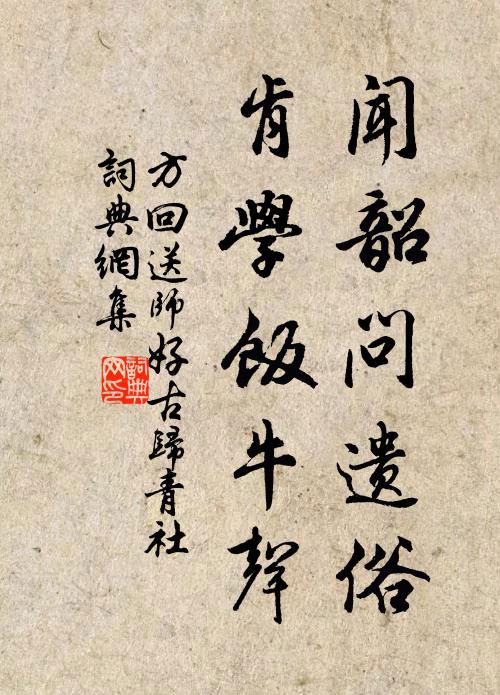 聞韶問遺俗
肯學飯牛聲
方回送師好古歸青社
詞典網集
詞典
网印